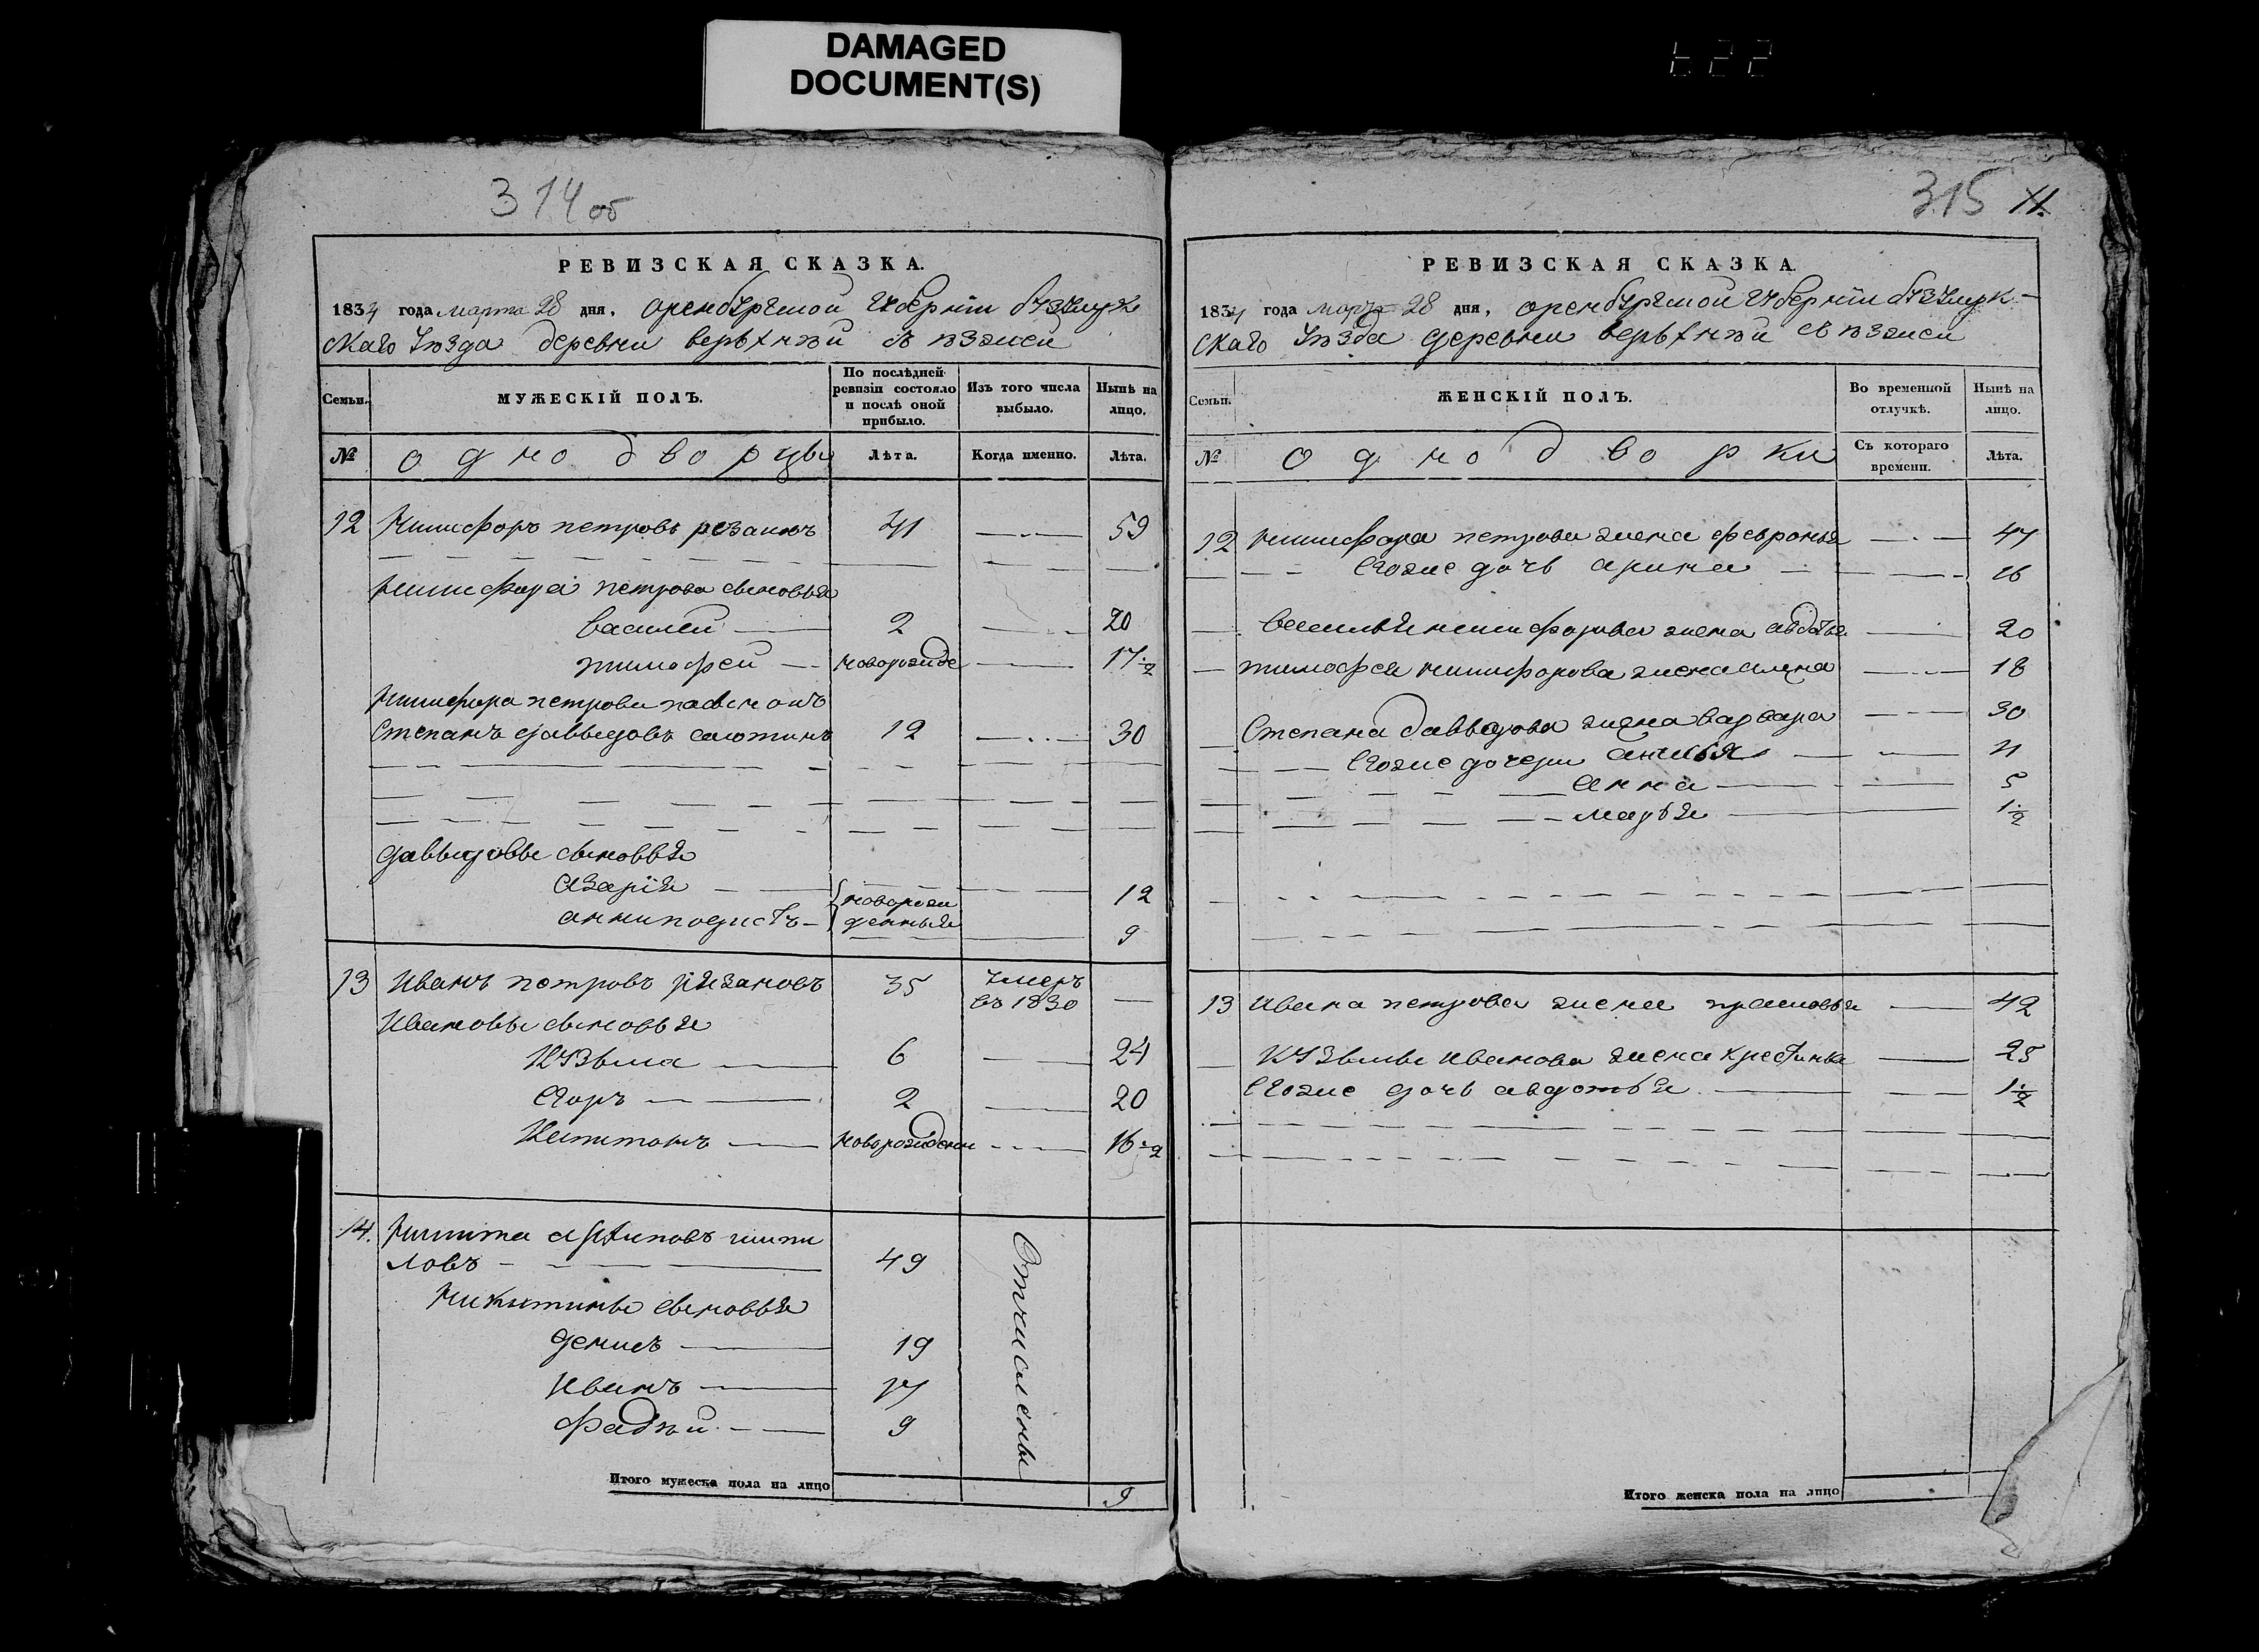 DAMAGED
DOCUMENT(S)
314 об
РЕВИЗСКАЯ СКАЗКА.
1834 года марта 28 дня. Оренбургской губернiи бузулук
скаго уѣзда деревни верьхнѣй
Семьи.
МУЖЕСКІЙ ПОЛЪ.
По послѣдней ревизіи состояло и послѣ оной прибыло.
Изъ того числа выбыло.
Нынѣ на лицо.
№
однодворцы
Лѣта.
Когда именно.
Лѣта.
12 Никифоръ петровъ резановъ 41 59
Никифора петрова сыновья
василей 2 20
тимофей новорожде 17 1/2
Никифора петрова
Степанъ давыдовъ 12 30
давыдовы сыновья
Азарія новорож 12
анниподистъ денныя 9
13 Иванъ петровъ рязановъ 35 умеръ въ 1830
Ивановы сыновья
Кузьма 6 24
Егоръ 2 20
Капитонъ новорожден 16 1/2
14. Никита шипи
ловъ 49
Никитины сыновья
денисъ 19
Иванъ 17
Фадѣй 9
Отчислены
Итого мужеска пола на лицо 9
315 11.
РЕВИЗСКАЯ СКАЗКА.
1834 года марта 28 дня, оренбургской губернiи бузулук-
скаго уѣзда деревни верьхнѣй
Семьи.
ЖЕНСКІЙ ПОЛЪ.
Во временной отлучкѣ.
Нынѣ на лицо.
№
однодворки
Съ котораго времени.
Лѣта.
12 никифора петрова жена февронья 47
Егоже дочь арина 16
василья никифорова жена авдотья 20
тимофея никифорова жена 18
Степана давыдова жена варвара 30
Егоже дочери 11
Анна 5
марья 1 1/2
13 Ивана петрова жена прасковья 42
Кузьмы иванова жена крестинья 25
Егоже дочь авдотья 1 1/2
Итого женска пола на лицо